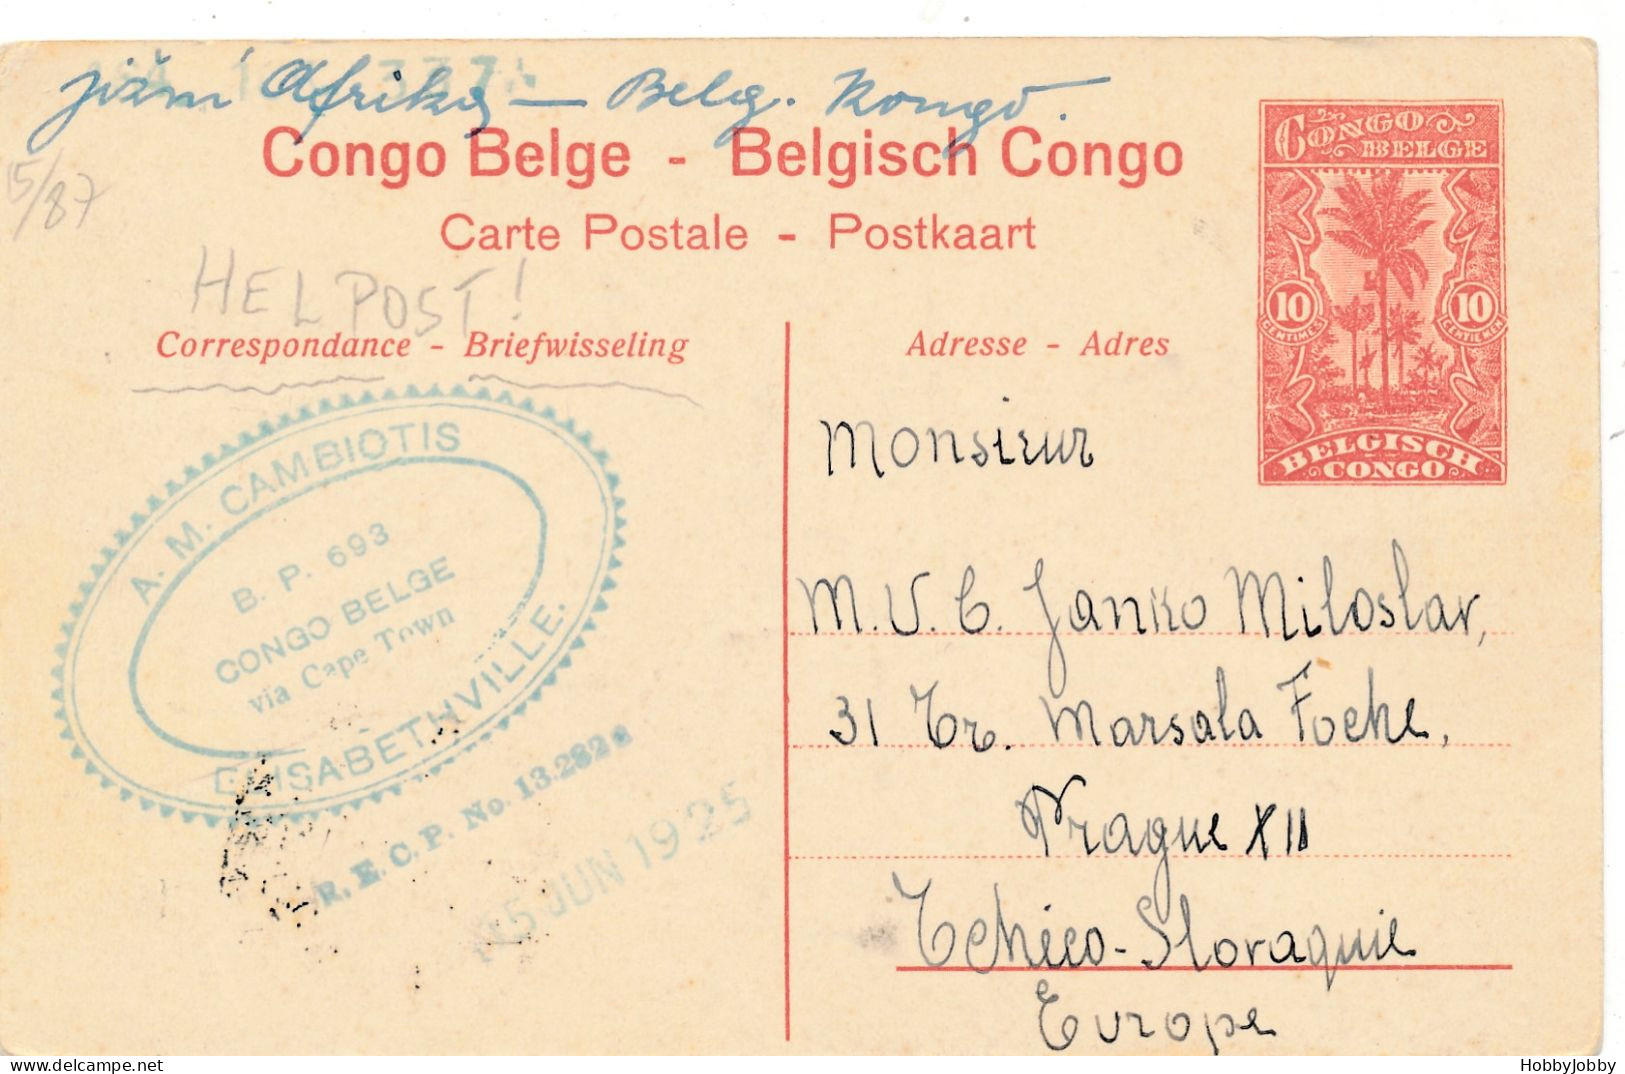 jižní Afrika — Belg. Kongo.
Congo Belge - Belgisch Congo
Carte Postale - Postkaart
5/87
HELPOST!
Correspondance - Briefwisseling
Adresse - Adres
CONGO BELGE
10 10
CENTIMES CENTIEMEN
BELGISCH CONGO
A. M. CAMBIOTIS
B. P. 693
CONGO BELGE
via Cape Town
ELISABETHVILLE.
R. E. C. P. No. 13.282
5 JUN 1925
Monsieur
M. V. C. Janko Miloslav,
31 Tr. Marsala Foche,
Prague XII
Tchéco-Slovaquie
Europe
HobbyJobby